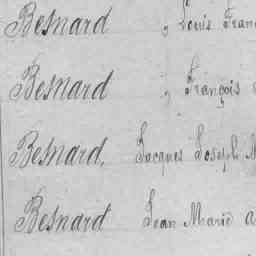 Besnard, Louis Fran
Besnard, François
Besnard, Jacques Joseph M
Besnard Jean Marie a